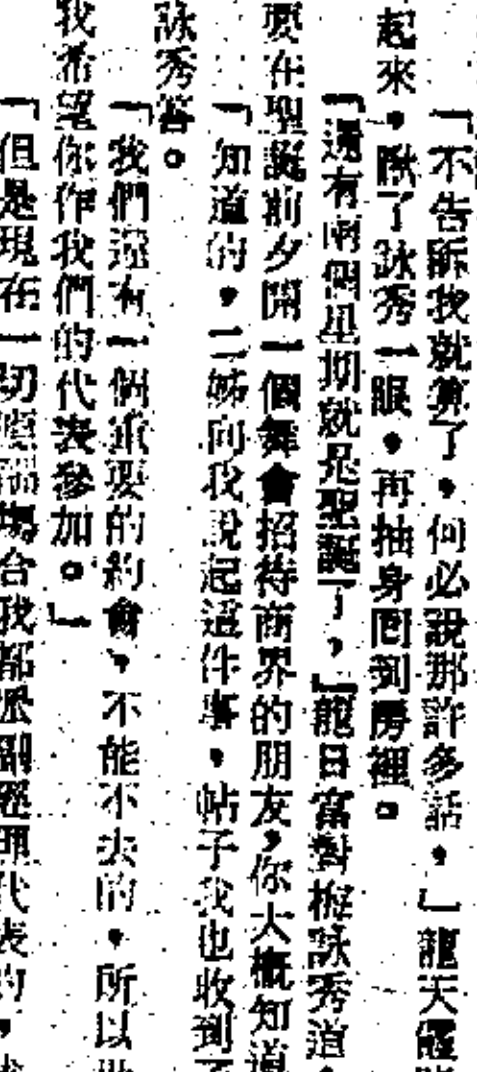 「不告訴我就算了，何必說那許多話，」龍天
起來，瞅了詠秀一眼，再抽身回到房裡。
「還有兩個星期就是聖誕了，」龍日富對梅詠秀道
要在聖誕前夕開一個舞會招待商界的朋友，你大概知道
「知道的，二姊向我說起這件事，帖子我也收到了
詠秀答。
「我們還有一個重要的約會，不能不去的，所以
我希望你作我們的代表參加。」
「但是現在一切 場合我都派副經理代表的，